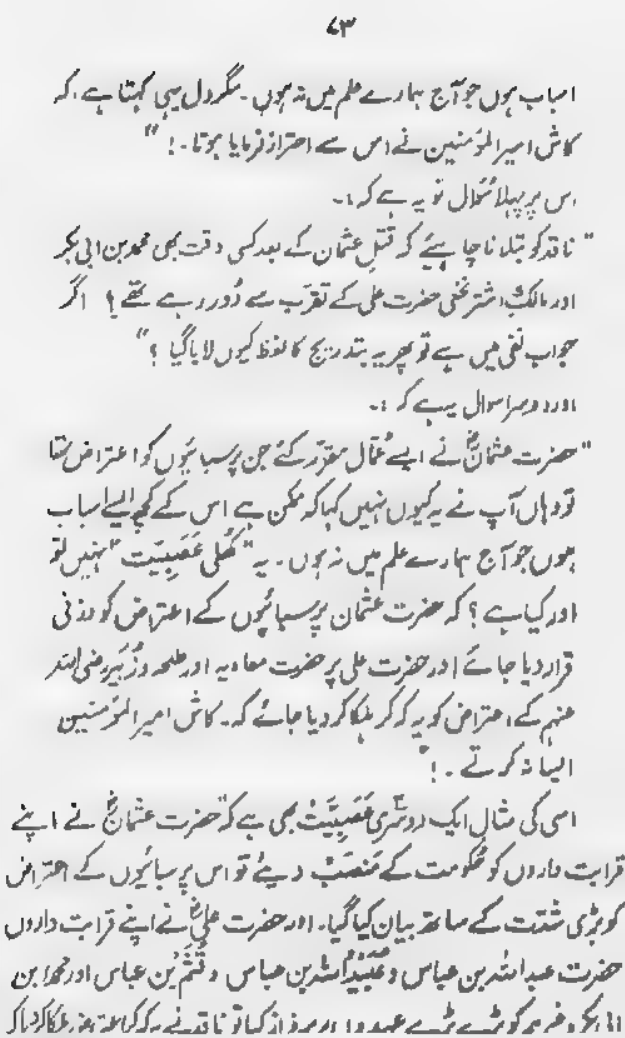 ۷۳
اسباب ہوں جو آج ہمارے علم میں نہ ہوں ۔ مگر دل یہی کہتا ہے ، کہ
کاش امیر المؤمنین نے اس سے احتراز فرمایا ہوتا ۔ ! "
اس پر پہلا سُوال تو یہ ہے کہ :۔
" ناقد کو بتلانا چاہئے کہ قتلِ عثمان کے بعد کسی وقت بھی محمد بن ابی بکر
اور مالک اشتر نخعی حضرت علی کے تقرّب سے دُور رہے تھے ؟ اگر
جواب نفی میں ہے تو پھر یہ بتدریج کا لفظ کیوں لایا گیا ؟ "
اور دوسرا سوال یہ ہے کہ :۔
" حضرت عثمانؓ نے ایسے عُمّال مقرّر کئے جن پر سبائیوں کو اعتراض تھا
تو وہاں آپ نے یہ کیوں نہیں کہا کہ ممکن ہے اس کے کچھ ایسے اسباب
ہوں جو آج ہمارے علم میں نہ ہوں ۔ یہ " کُھلی عَصَبِیَت " نہیں تو
اور کیا ہے ؟ کہ حضرت عثمان پر سبائیوں کے اعتراض کو وزنی
قرار دیا جائے اور حضرت علی پر حضرت معاویہ اور طلحہ و زُبَیر رضی اللہ
عنہم کے اعتراض کو یہ کہہ کر ہلکا کر دیا جائے کہ ۔ کاش امیر المؤمنین
ایسا نہ کرتے ۔ ! "
اسی کی مثال ایک دوسری عَصَبِیَّتْ بھی ہے کہ حضرت عثمانؓ نے اپنے
قرابت داروں کو حُکومت کے مَنصَبْ دیئے تو اس پر سبائیوں کے اعتراض
کو بڑی شدّت کے ساتھ بیان کیا گیا ۔ اور حضرت علیؓ نے اپنے قرابت داروں
حضرت عبداللہ بن عباس و عُبَیْدُاللہ بن عباس و قُثَمْ بن عباس اور محمد ابن
ابی بکر وغیرہم کو بڑے بڑے عہدوں پر سرفراز کیا تو ناقد نے یہ کہہ کر